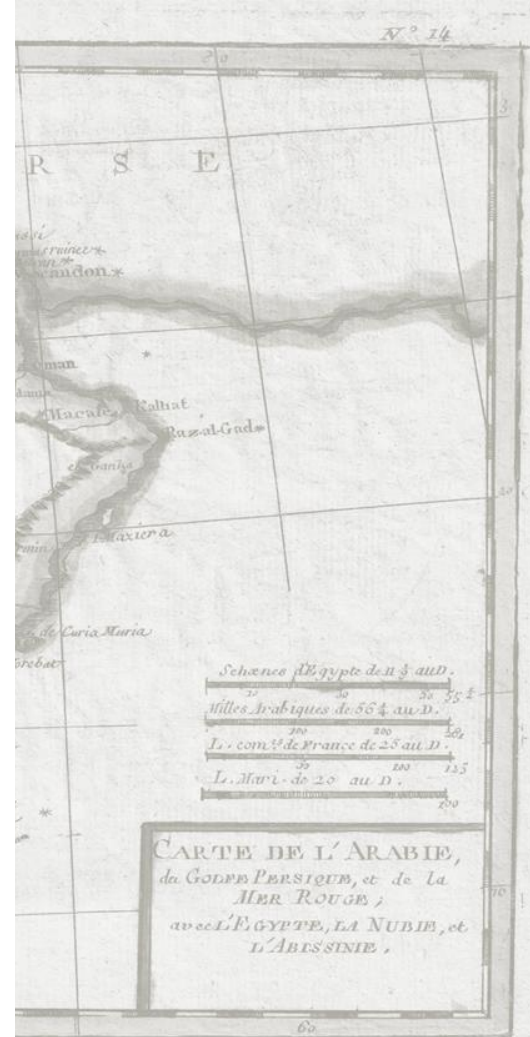 N.º 14
R S E
candon
Oman
Macate
Kalhat
Raz-al-Gad
el Ganha
I. Maxiera
de Curia Muria
Schœnes d'Egypte de 11 ⅓ au D.
Milles Arabiques de 56 ¼ au D.
100 200 281
L. com.es de France de 25 au D.
50 100 125
L. Mari. de 20 au D.
100
CARTE DE L'ARABIE,
du GOLFE PERSIQUE, et de la
MER ROUGE ;
avec L'EGYPTE, LA NUBIE, et
L'ABISSINIE .
20
10
60